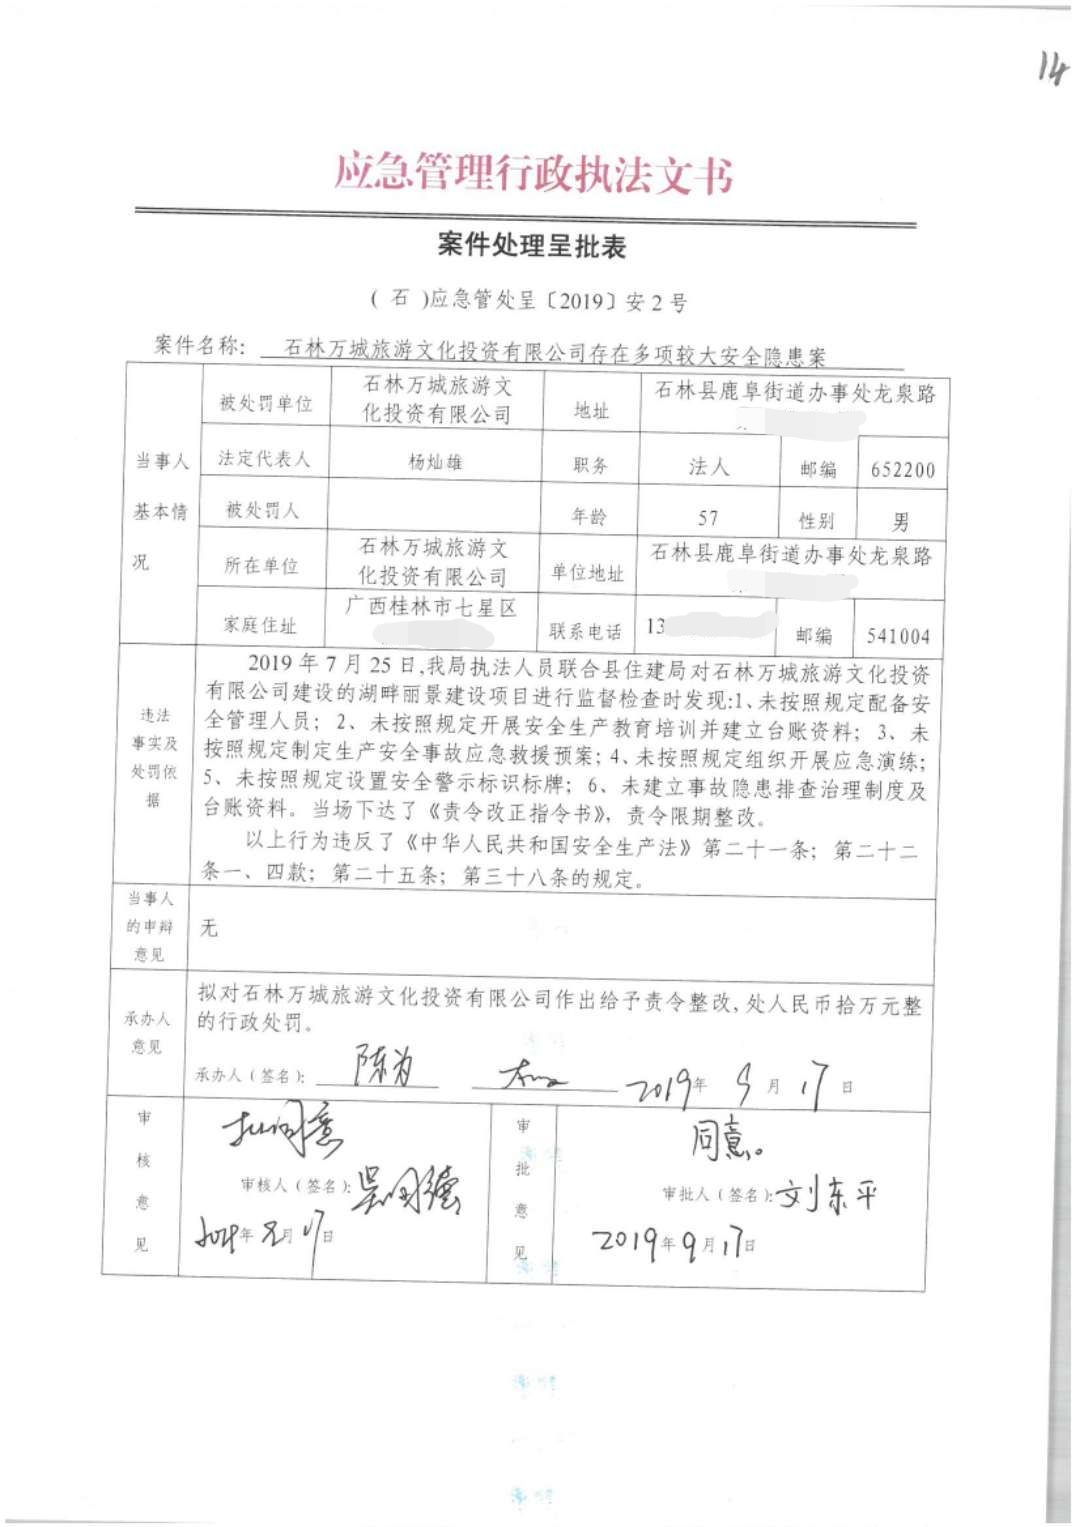 14
应急管理行政执法文书
案件处理呈批表
( 石 )应急管处呈〔2019〕安 2 号
案件名称: 石林万城旅游文化投资有限公司存在多项较大安全隐患案
当事人
基本情
况
被处罚单位
石林万城旅游文
化投资有限公司
地址
石林县鹿阜街道办事处龙泉路
法定代表人
杨灿雄
职务
法人
邮编
652200
被处罚人
年龄
57
性别
男
所在单位
石林万城旅游文
化投资有限公司
单位地址
石林县鹿阜街道办事处龙泉路
家庭住址
广西桂林市七星区
联系电话
13
邮编
541004
违法
事实及
处罚依
据
2019 年 7 月 25 日,我局执法人员联合县住建局对石林万城旅游文化投资
有限公司建设的湖畔丽景建设项目进行监督检查时发现:1、未按照规定配备安
全管理人员; 2、未按照规定开展安全生产教育培训并建立台账资料; 3、未
按照规定制定生产安全事故应急救援预案; 4、未按照规定组织开展应急演练;
5、未按照规定设置安全警示标识标牌; 6、未建立事故隐患排查治理制度及
台账资料。当场下达了《责令改正指令书》, 责令限期整改。
以上行为违反了《中华人民共和国安全生产法》第二十一条; 第二十二
条一、四款; 第二十五条; 第三十八条的规定。
当事人
的申辩
意见
无
承办人
意见
拟对石林万城旅游文化投资有限公司作出给予责令整改, 处人民币拾万元整
的行政处罚。
承办人（签名）: 陈为 2019年 9 月 17 日
审
核
意
见
拟同意
审核人（签名）:
2019年 9 月 17 日
审
批
意
见
同意。
审批人（签名）: 刘东平
2019年 9 月 17 日